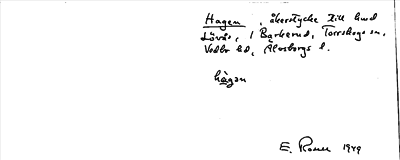 Hagen, åkerstycke till hmd
Lövås, i Bärkerud, Torrskogs sn,
Vedbo hd, Älvsborgs l.
hàgan
E. Rosen 1949